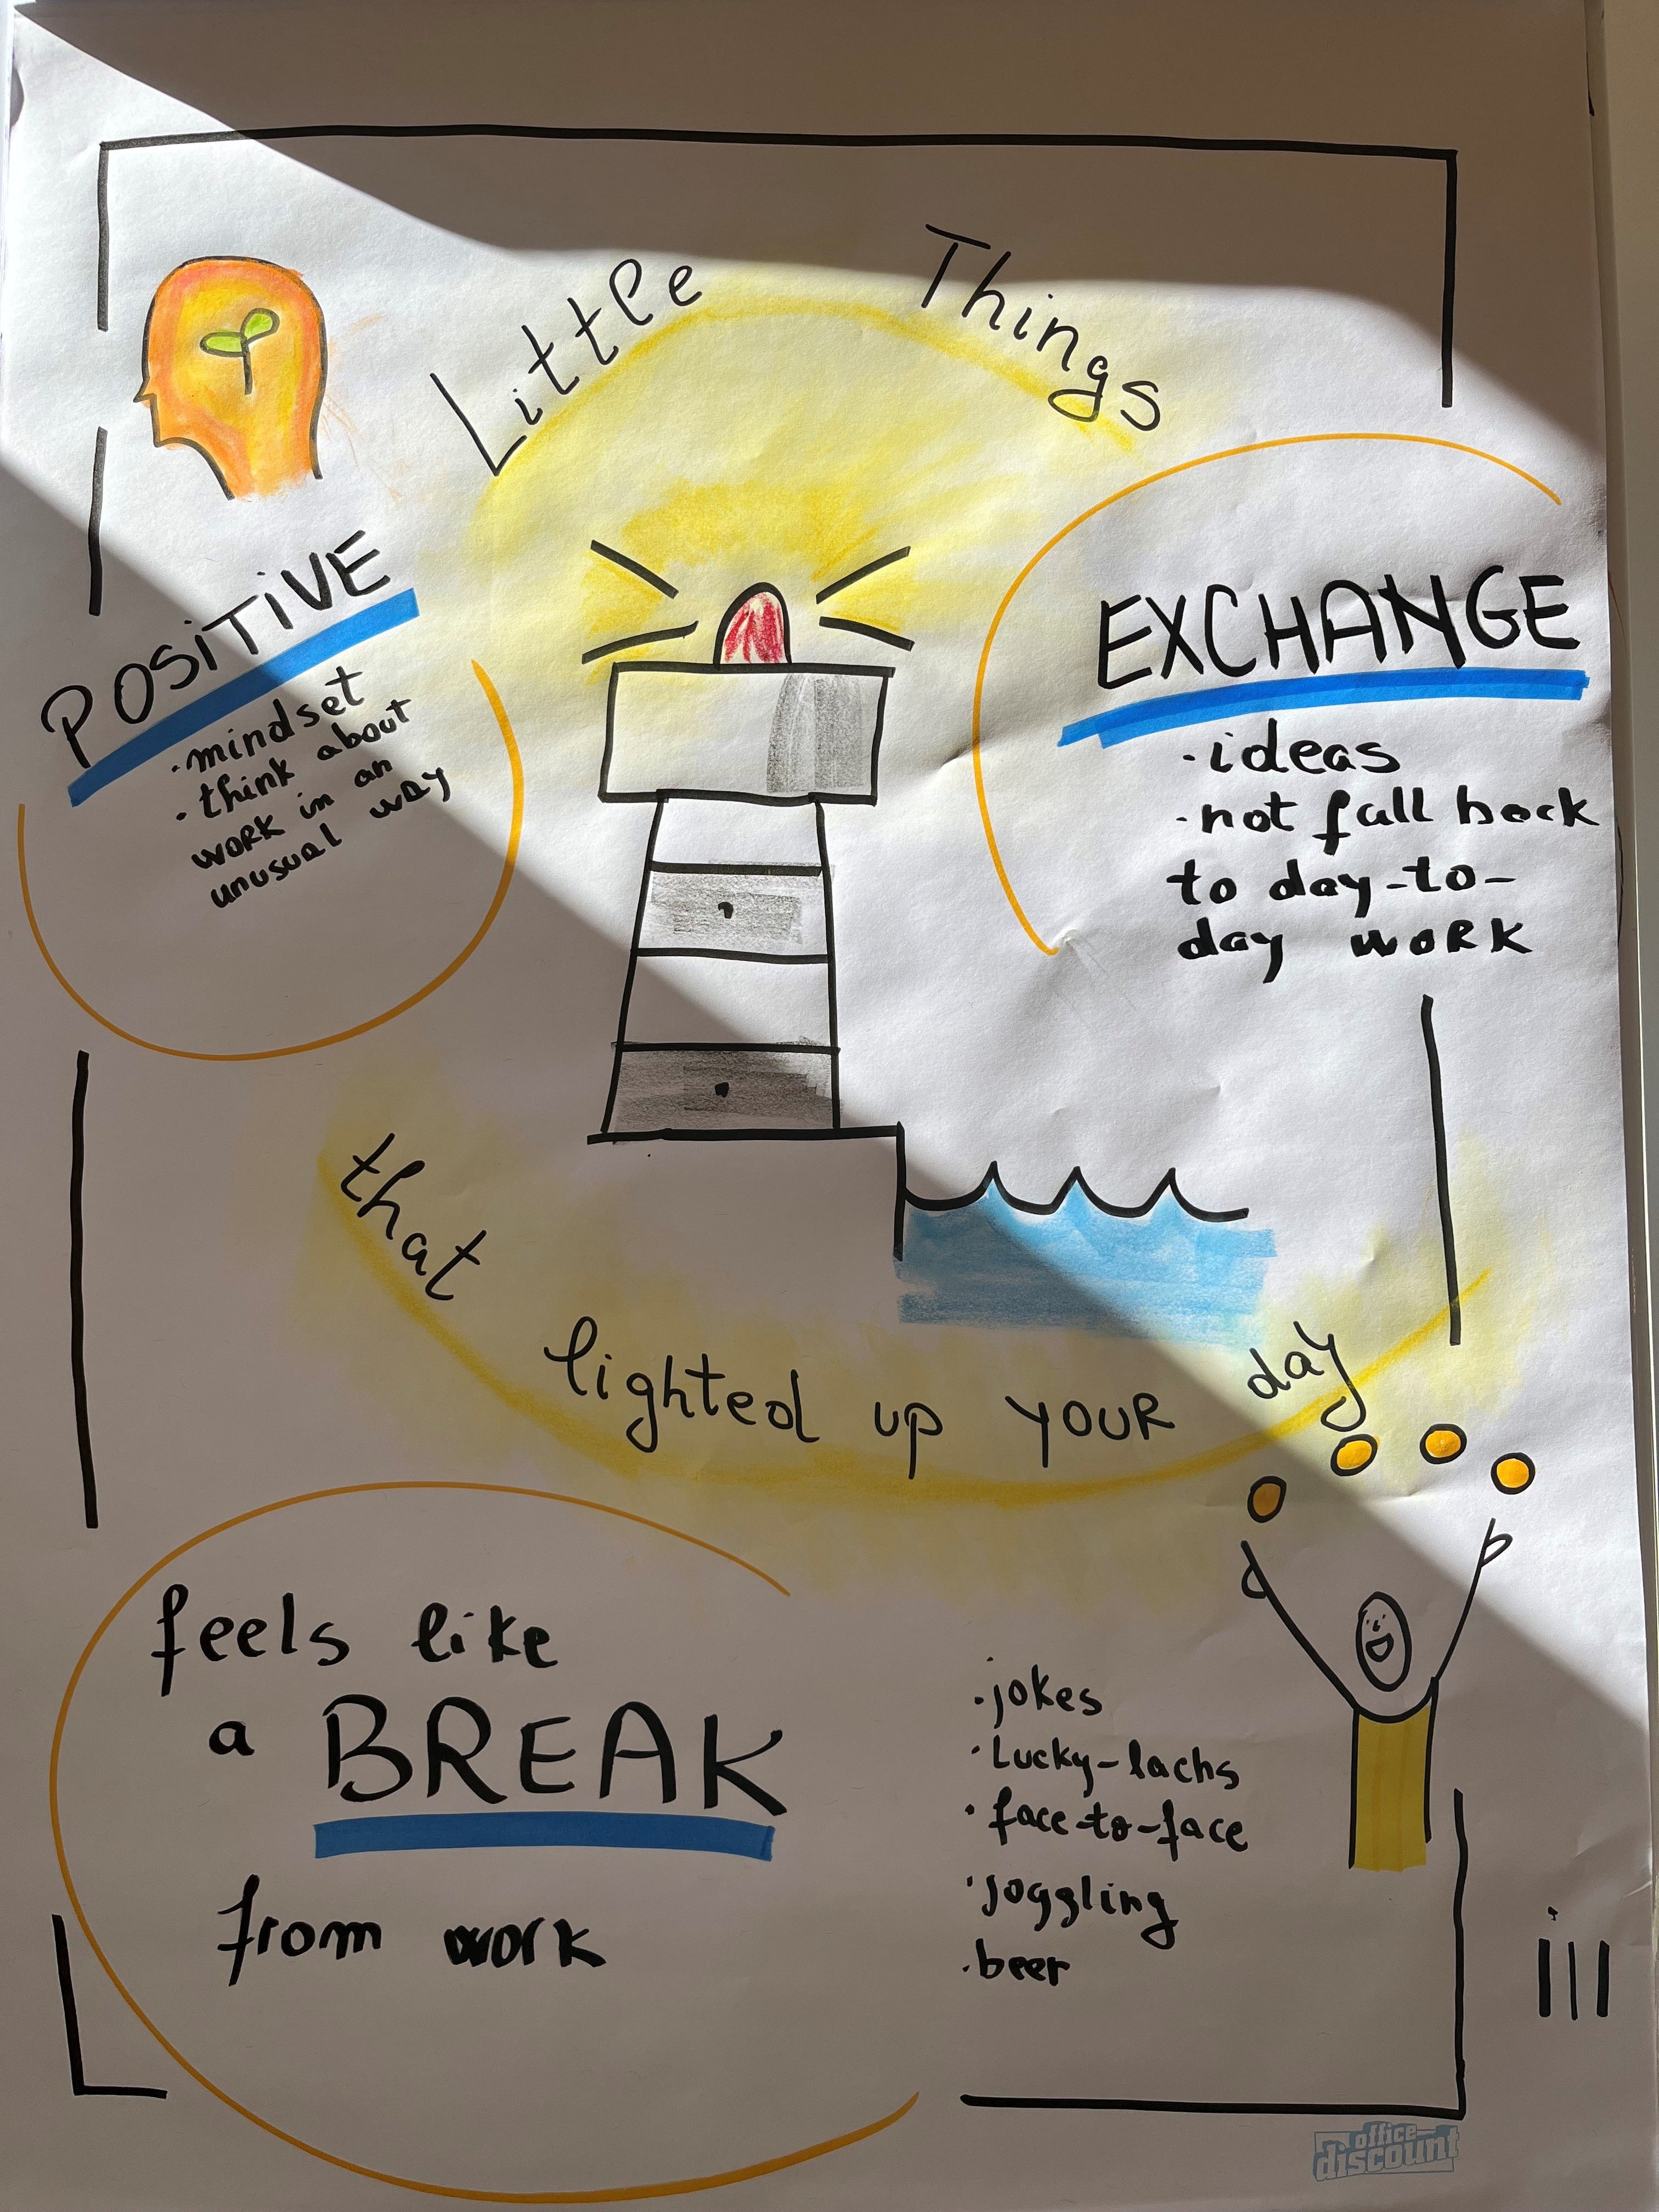 Little Things
POSITIVE
·mindset
·think about
work in an
unusual way
EXCHANGE
·ideas
·not fall back
to day-to-
day work
that lighted up your day
feels like
a BREAK
from work
·jokes
·Lucky-lachs
·face-to-face
·joggling
·beer
office
discount